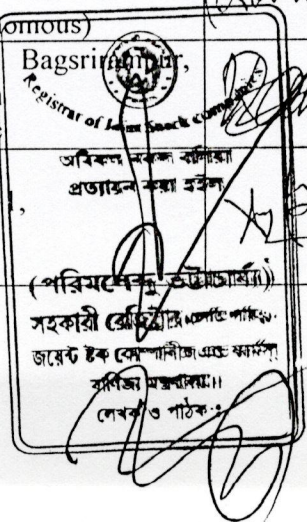 omous)
Bagsrirampur,
Registrar of Joint Stock Compan
অবিকল নকল বলিয়া
প্রত্যায়ন করা হইল
,
(পরিমলেন্দু ভট্টাচার্য্য)
সহকারী রেজিষ্ট্রার
জয়েন্ট ষ্টক কোম্পানীজ এন্ড ফার্মস্
বাণিজ্য মন্ত্রণালয়।
লেখক ও পাঠক :